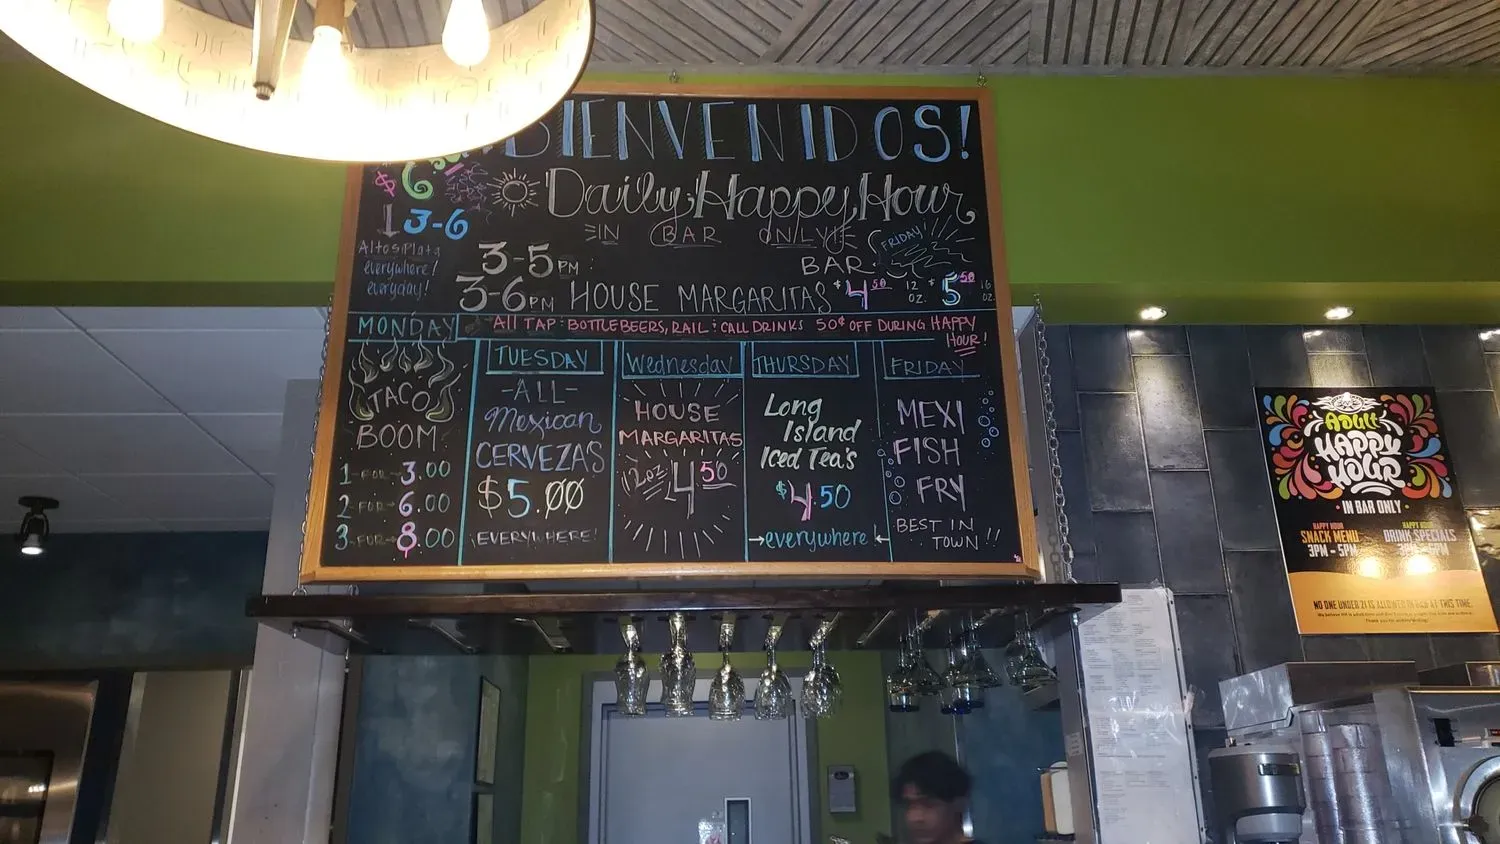 BIENVENIDOS!
Daily Happy Hour
IN BAR ONLY!
$6
3-6
Altos:Plata
everywhere!
everyday!
3-5PM:
BAR
FRIDAY!
3-6PM HOUSE MARGARITAS $4.50 12 OZ. $5.50 16 OZ.
All TAP: BOTTLE BEERS, RAIL: CALL DRINKS 50¢ OFF DURING HAPPY HOUR!
MONDAY
TACO
BOOM
1-FOR-3.00
2-FOR-6.00
3-FOR-8.00
TUESDAY
-ALL-
Mexican
CERVEZAS
$5.00
EVERYWHERE!
Wednesday
HOUSE
MARGARITAS
12oz 4.50
THURSDAY
Long
Island
Iced Tea's
$4.50
everywhere
FRIDAY
MEXI
FISH
FRY
BEST IN
TOWN!!
Adult
HAPPY
HOUR
• IN BAR ONLY •
HAPPY HOUR
SNACK MENU
3PM - 5PM
HAPPY HOUR
DRINK SPECIALS
NO ONE UNDER 21 IS ALLOWED IN BAR AT THIS TIME.